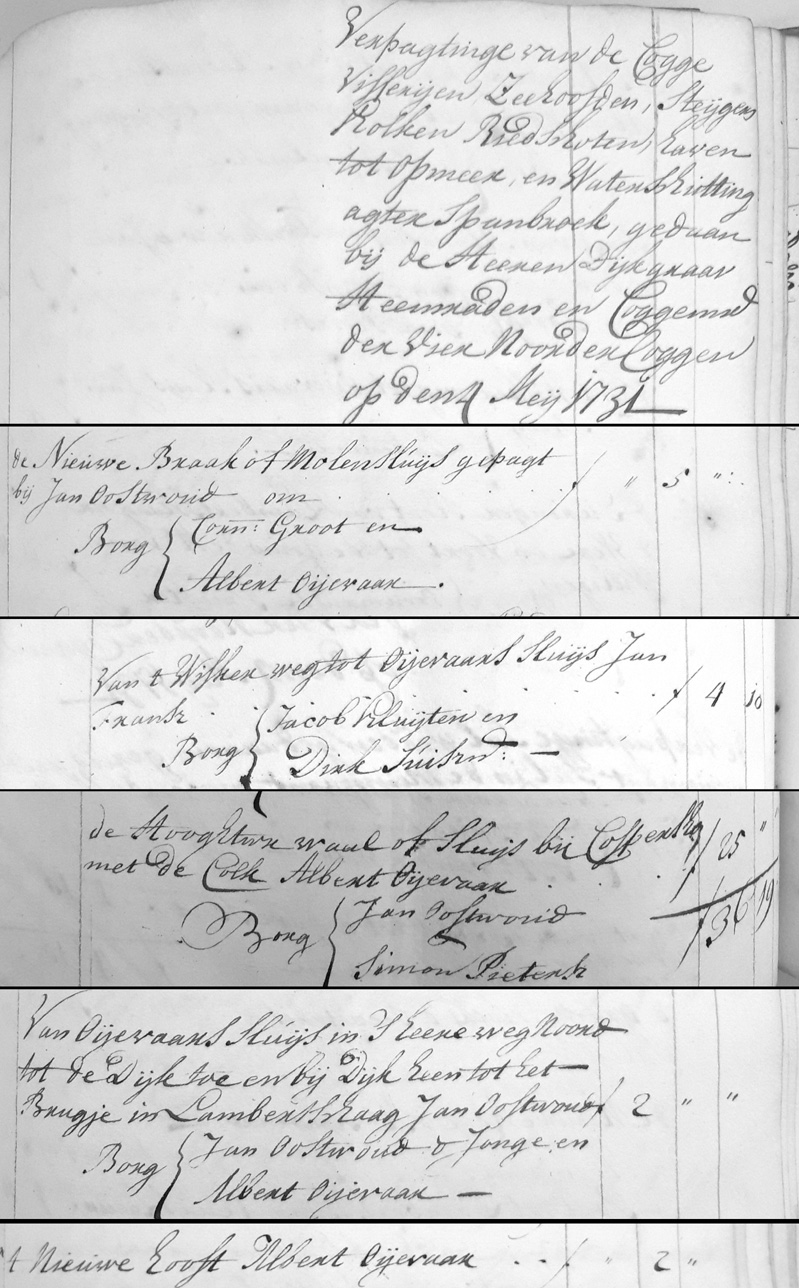 Verpagtinge van de Cogge
Visserijen Zeehoofden, Steijgers
Kolken Riedslooten, haven
tot Opmeer, en Waterschotting
agter Spanbroek, gedaan
bij de Heeren Dijkgraav
Heemraden en Coggemrd
der Vier Noorder Coggen
op den 4 Meij 1731
de Nieuwe Braak of Molensluijs gepagt
bij Jan Oostwoud om f " 5 "
Borg { Corn: Groot en
Albert Oijevaar
Van t Wisker weg tot Oijevaars Sluijs Jan
Fransz f 4 10
Borg { Jacob Kluijten en
Dirk
de Hooghtwr waal of Sluijs bij
met de Colk Albert Oijevaar f 25 "
Borg { Jan Oostwoud f 36 19
Simon Pietersz
Van Oijevaars Sluijs in 's Heere weg Noord
tot de Dijk toe en bij Dijk heen tot het
Brugje in Lambertschaag Jan Oostwoud f 2 " "
Borg { Jan Oostwoud d' Jonge en
Albert Oijevaar
't Nieuwe Hooft Albert Oijevaar f " 2 "